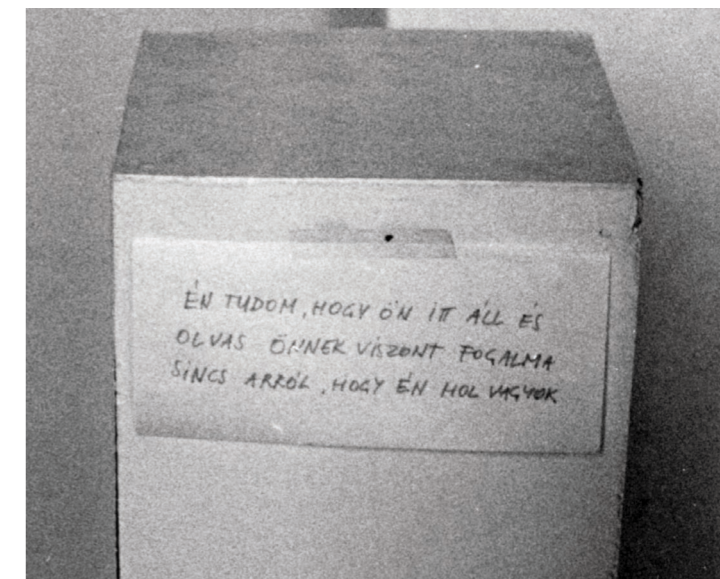 ÉN TUDOM, HOGY ÖN ITT ÁLL ÉS
OLVAS ÖNNEK VISZONT FOGALMA
SINCS ARRÓL, HOGY ÉN HOL VAGYOK